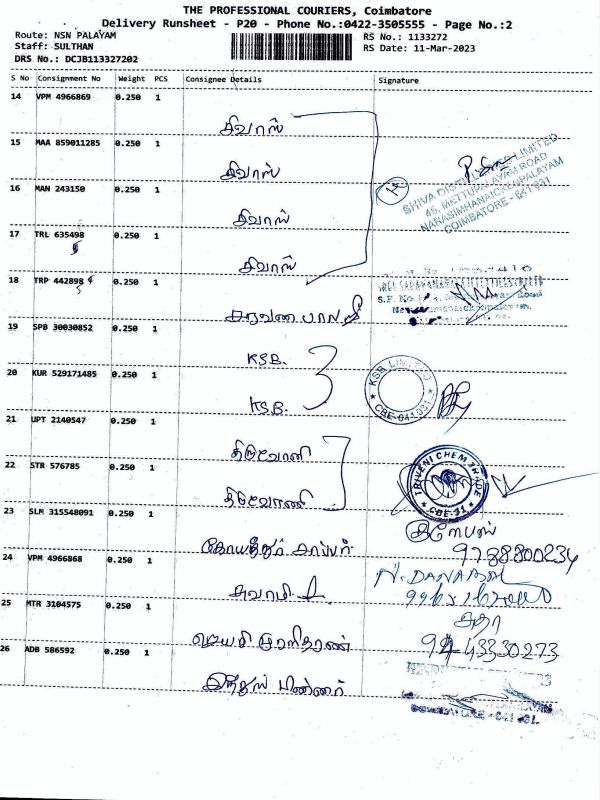 THE PROFESSIONAL COURIERS, Coimbatore
Delivery Runsheet - P20 - Phone No.:0422-3505555 - Page No.:2
Route: NSN PALAYAM
RS No.: 1133272
Staff: SULTHAN
RS Date: 11-Mar-2023
DRS No.: DCJB113327202
S No Consignment No Weight PCS Consignee Details Signature
14 VPM 4966869 0.250 1
சிவாஸ்
15 MAA 859011285 0.250 1
சிவாஸ்
16 MAN 243150 0.250 1
சிவாஸ்
SHIVA LIMITED
45, METTUPALAYAM ROAD
NARASIMHANAICKENPALAYAM
COIMBATORE - 641 031
17 TRL 635498 0.250 1
சிவாஸ்
18 TRP 442898 0.250 1
சரவணபாலாஜி
19 SPB 30030852 0.250 1
KSB.
20 KUR 529171485 0.250 1
KSB.
KSB LIMITED
CBE-641 031
21 UPT 2140547 0.250 1
திருவேணி
22 STR 576785 0.250 1
திரிவேணி
TRIVENI CHEM
CBE-31
23 SLM 315548091 0.250 1
9788800234
24 VPM 4966868 0.250 1
சுவாமி
N. DANABAL
25 MTR 3104575 0.250 1
சுதா
9443330273
26 ADB 586592 0.250 1
COIMBATORE - 641 031.